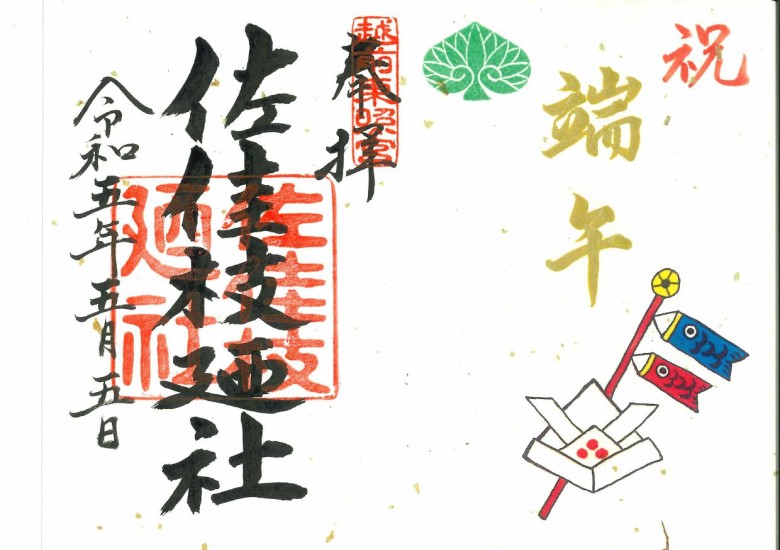 祝
端午
奉拝
越前東照宮
佐佳枝廼社
佐佳枝
廼社
令和五年五月五日